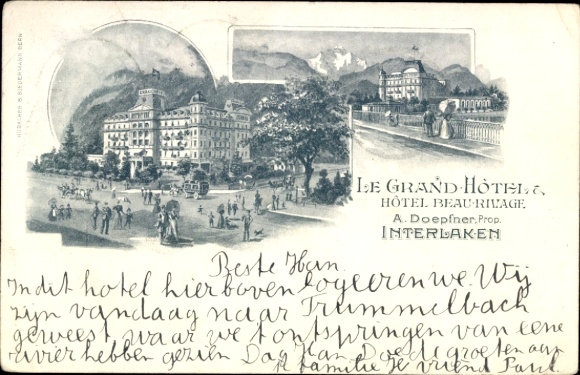 LE GRAND HÔTEL &
HÔTEL BEAU-RIVAGE
A. Doepfner, Prop.
INTERLAKEN
Beste Han
In dit hotel hierboven logeeren we. Wij
zijn vandaag naar Trummelbach
geweest waar we t ontspringen van eene
rivier hebben gezien Dag Han Doe de groeten aan
familie Je vriend Paul.